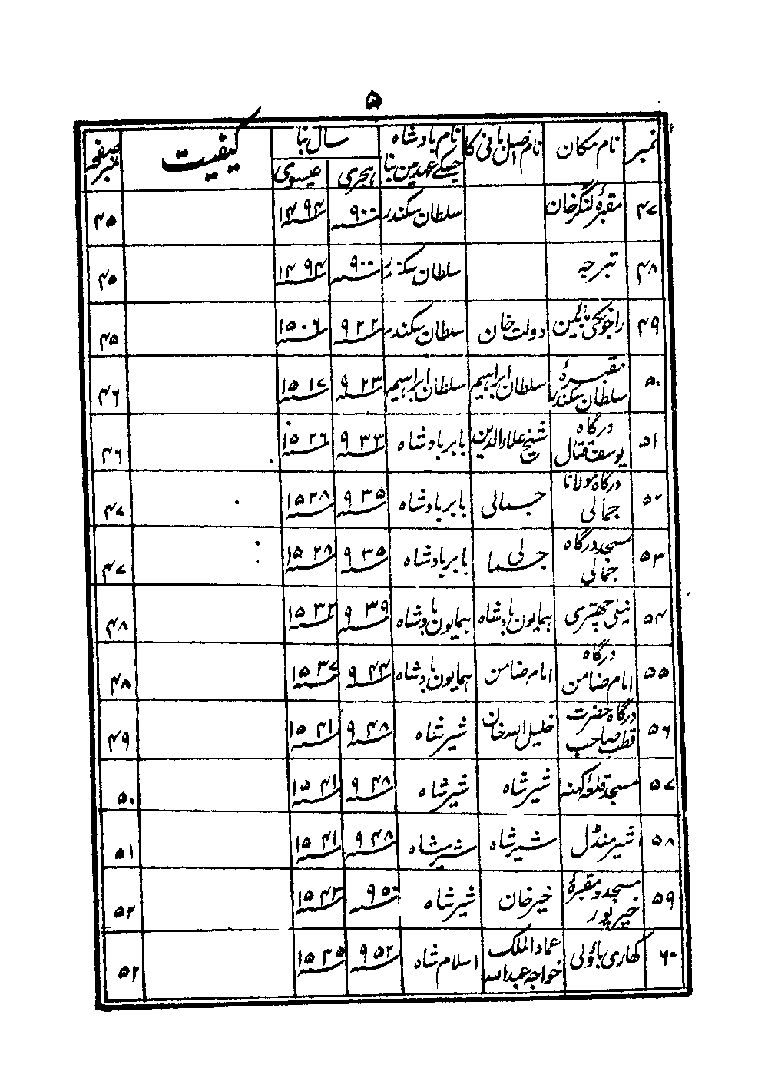 ۵
نمبر | نام مکان | نام اصل بانی کا | نام بادشاہ جسکے عہد مین بنا | سال بنا ہجری | سال بنا عیسوی | کیفیت | صفحہ نمبر
۴۷ | مقبرۂ لنگر خان | | سلطان سکندر | ۹۰۰ | ۱۴۹۴ | | ۴۵
۴۸ | تبرجہ | | سلطان سکندر | ۹۰۰ | ۱۴۹۴ | | ۴۵
۴۹ | راجونکی بائین | دولت خان | سلطان سکندر | ۹۲۲ | ۱۵۰۶ | | ۴۵
۵۰ | مقبرۂ سلطان سکندر | سلطان ابراہیم | سلطان ابراہیم | ۹۲۳ | ۱۵۱۷ | | ۴۶
۵۱ | درگاہ یوسف قتال | شیخ علاء الدین | بابر بادشاہ | ۹۳۳ | ۱۵۲۶ | | ۴۶
۵۲ | درگاہ مولانا جمالی | جمالی | بابر بادشاہ | ۹۳۵ | ۱۵۲۸ | | ۴۷
۵۳ | مسجد درگاہ جمالی | جمالی | بابر بادشاہ | ۹۳۵ | ۱۵۲۸ | | ۴۷
۵۴ | نیلی چھتری | ہمایون بادشاہ | ہمایون بادشاہ | ۹۳۹ | ۱۵۳۲ | | ۴۸
۵۵ | درگاہ امام ضامن | امام ضامن | ہمایون بادشاہ | ۹۴۴ | ۱۵۳۷ | | ۴۸
۵۶ | درگاہ حضرت قطب صاحب | خلیل اللہ خان | شیر شاہ | ۹۴۸ | ۱۵۴۱ | | ۴۹
۵۷ | مسجد قلعہ کہنہ | شیر شاہ | شیر شاہ | ۹۴۸ | ۱۵۴۱ | | ۵۰
۵۸ | شیر منڈل | شیر شاہ | شیر شاہ | ۹۴۸ | ۱۵۴۱ | | ۵۱
۵۹ | مسجد و مقبرۂ خیر پور | خیر خان | شیر شاہ | ۹۵۰ | ۱۵۴۳ | | ۵۲
۶۰ | کھاری باؤلی | عماد الملک خواجہ عبداللہ | اسلام شاہ | ۹۵۲ | ۱۵۴۵ | | ۵۲